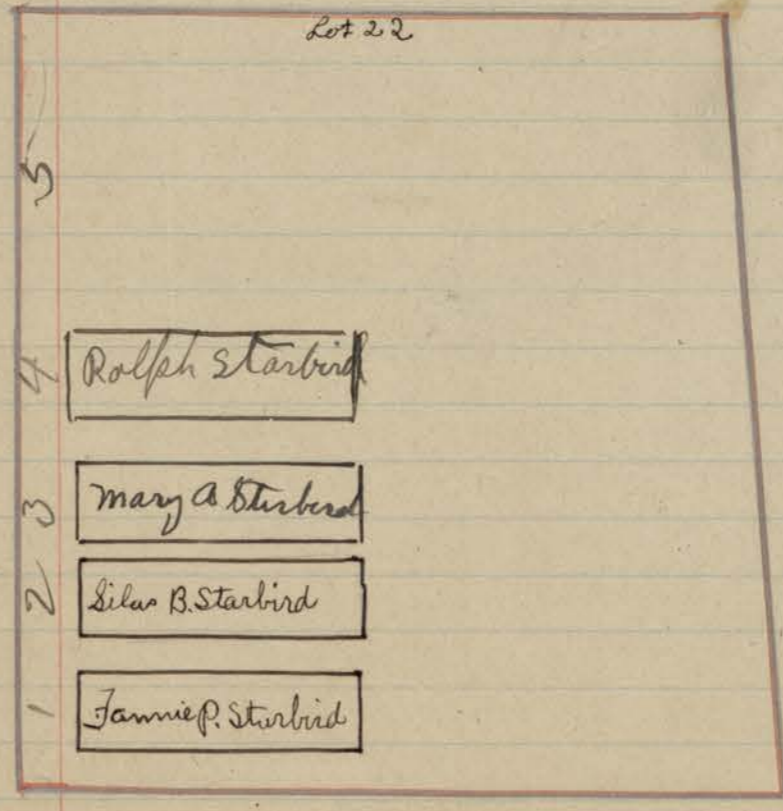 Lot 22
5
4 Ralph Starbird
3 Mary A Sturbird
2 Silas B. Starbird
1 Fannie P. Sturbird